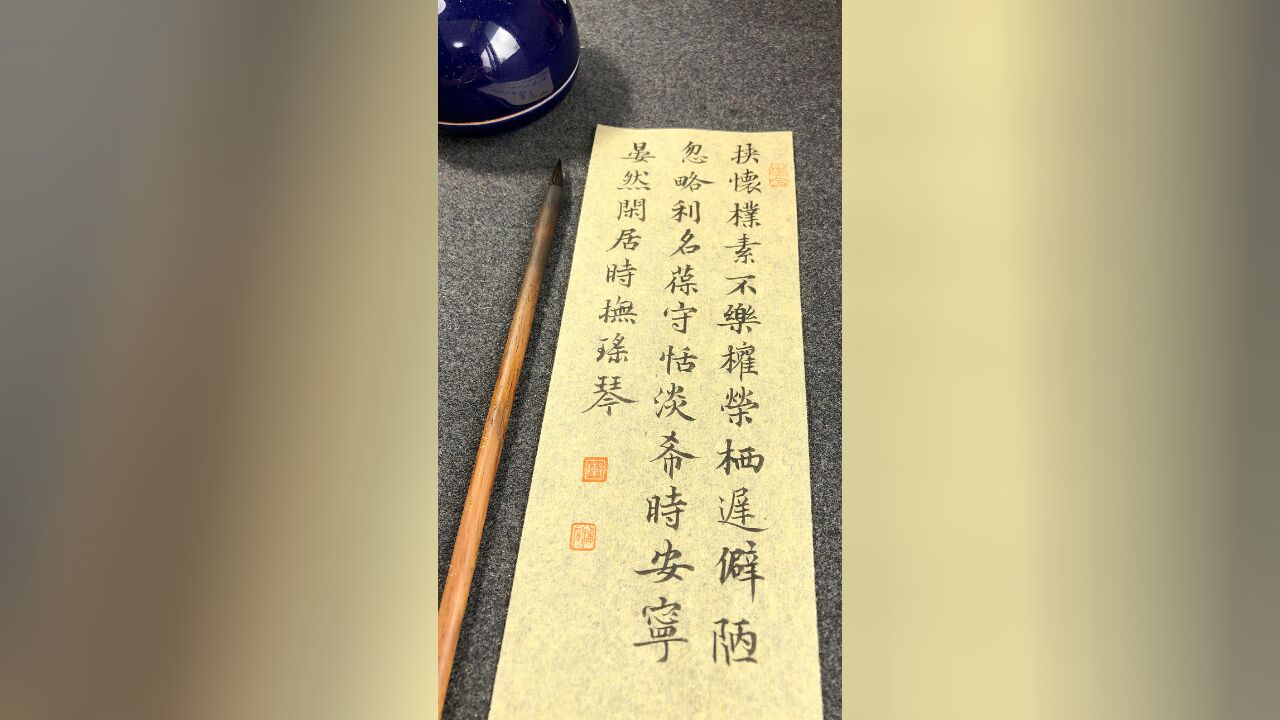 抉懷樸素不樂權榮栖遲僻陋
忽略利名葆守恬淡希時安寧
晏然閑居時撫瑤琴